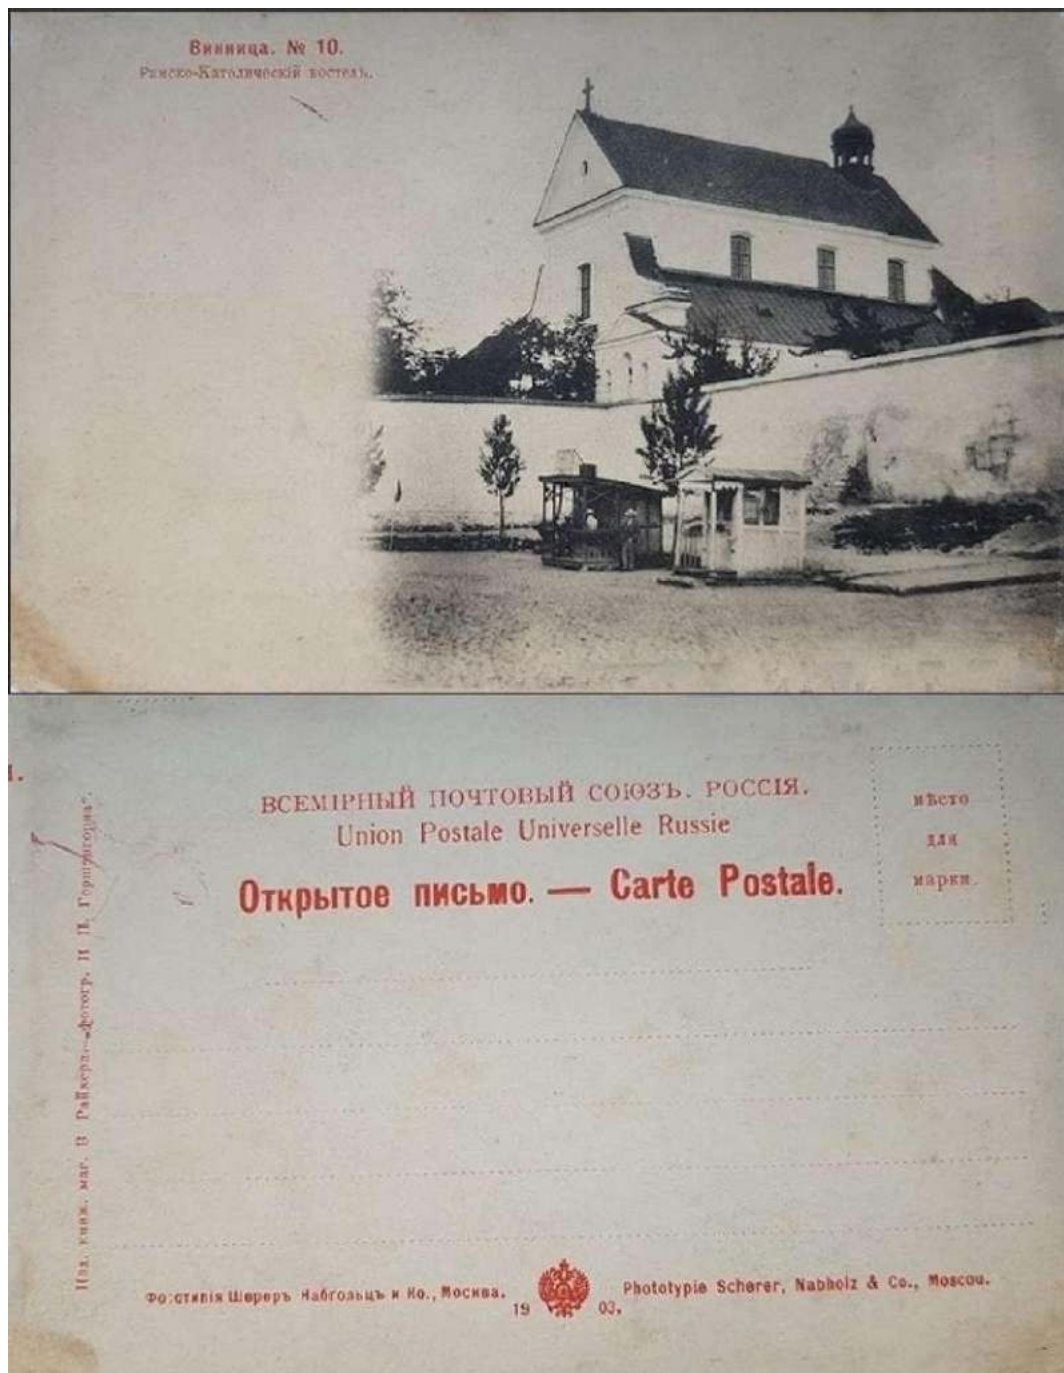 Винница. № 10.
Римско-Католическій костелъ.
ВСЕМІРНЫЙ ПОЧТОВЫЙ СОЮЗЪ. РОССІЯ.
Union Postale Universelle Russie
Открытое письмо. — Carte Postale.
мѣсто
для
марки.
Изд. книж. маг. В Райхера.—фотогр. И П.
Фототипія Шереръ Набгольцъ и Ко., Москва.
1903.
Phototypie Scherer, Nabholz & Co., Moscou.